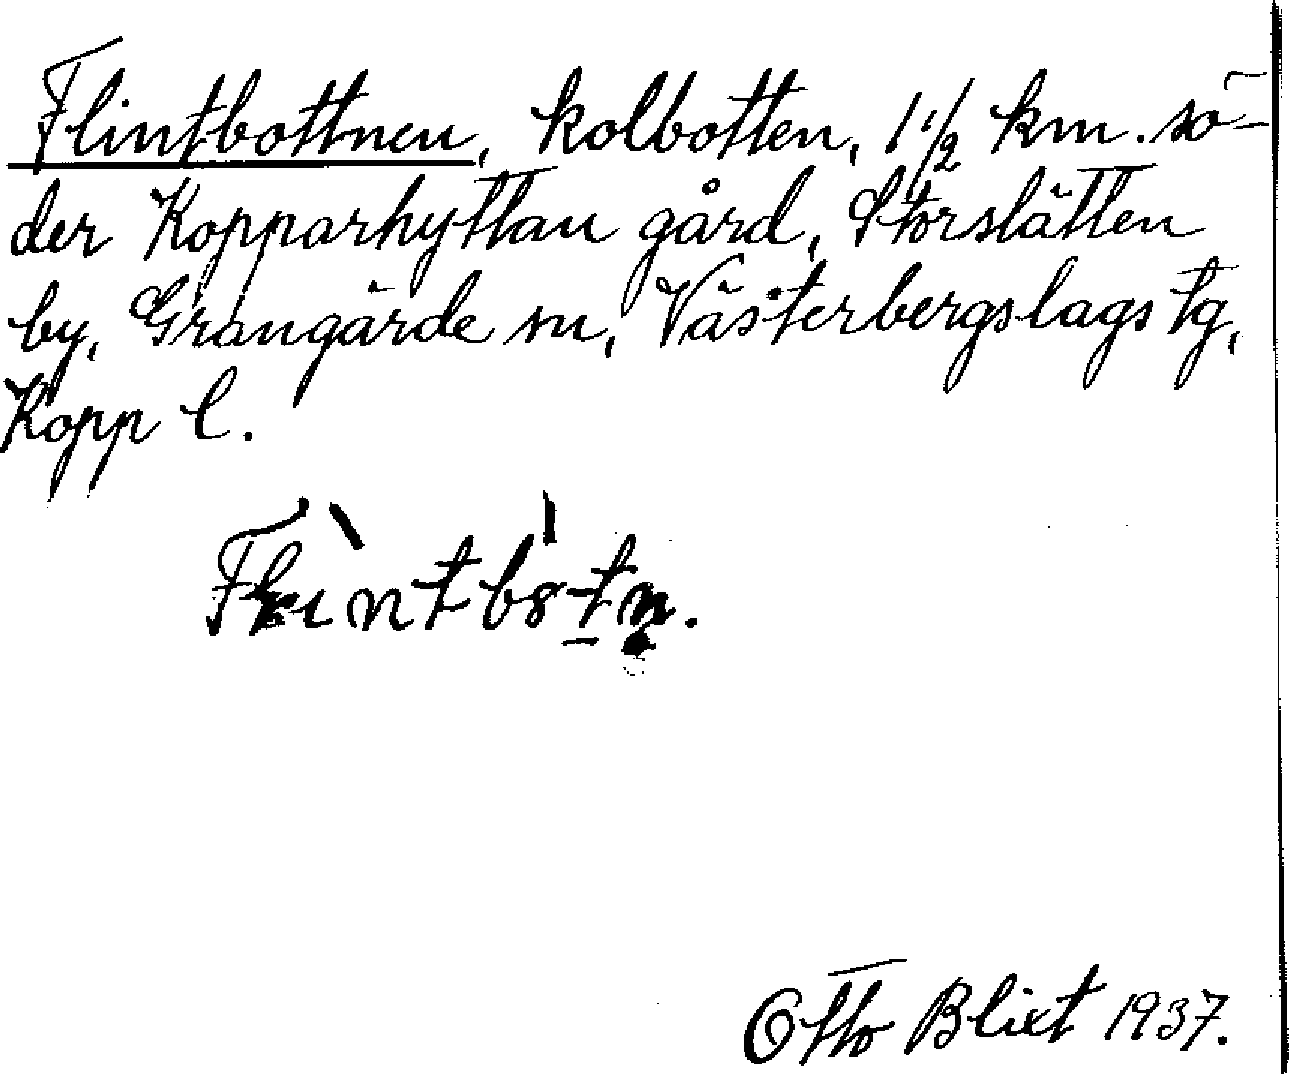 Flintbottnen, kolbotten, 1 1/2 km. sö-
der Kopparhyttan gård, Storslätten
by, Grangärde sn, Västerbergslags tg,
Kopp l.
Otto Blixt 1937.